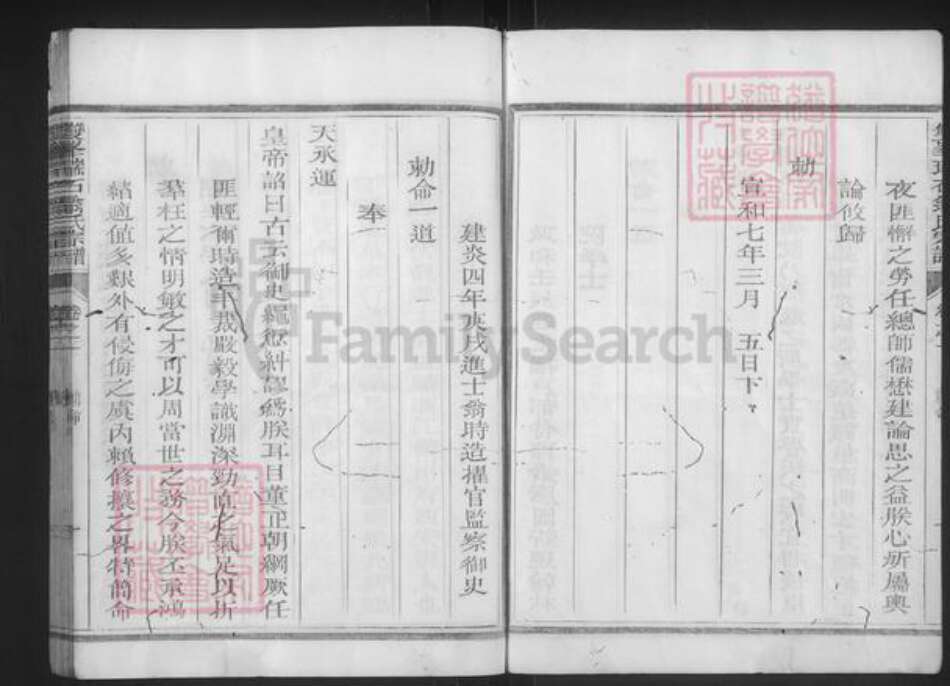 夜匪懈之勞任總師儒懋建論思之益朕心所屬輿
論攸歸
勅
宣和七年三月 五日下
建炎四年庚戌進士翁時造擢官監察御史
勅命一道
奉
天承運
皇帝詔曰古云御史繩愆糾謬為朕耳目董正朝綱厥任
匪輕爾時造丰裁嚴毅學識淵深勁直之氣足以折
羣枉之情明敏之才可以周當世之務今朕丕承鴻
緒適值多艱外有侵侮之虞內賴修攘之畧特簡命
卷之一
FamilySearch